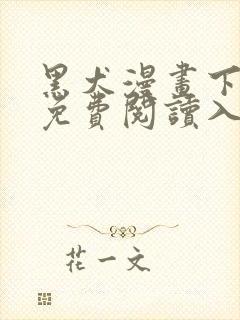 黑犬漫畫下
免費閱讀入
花一文